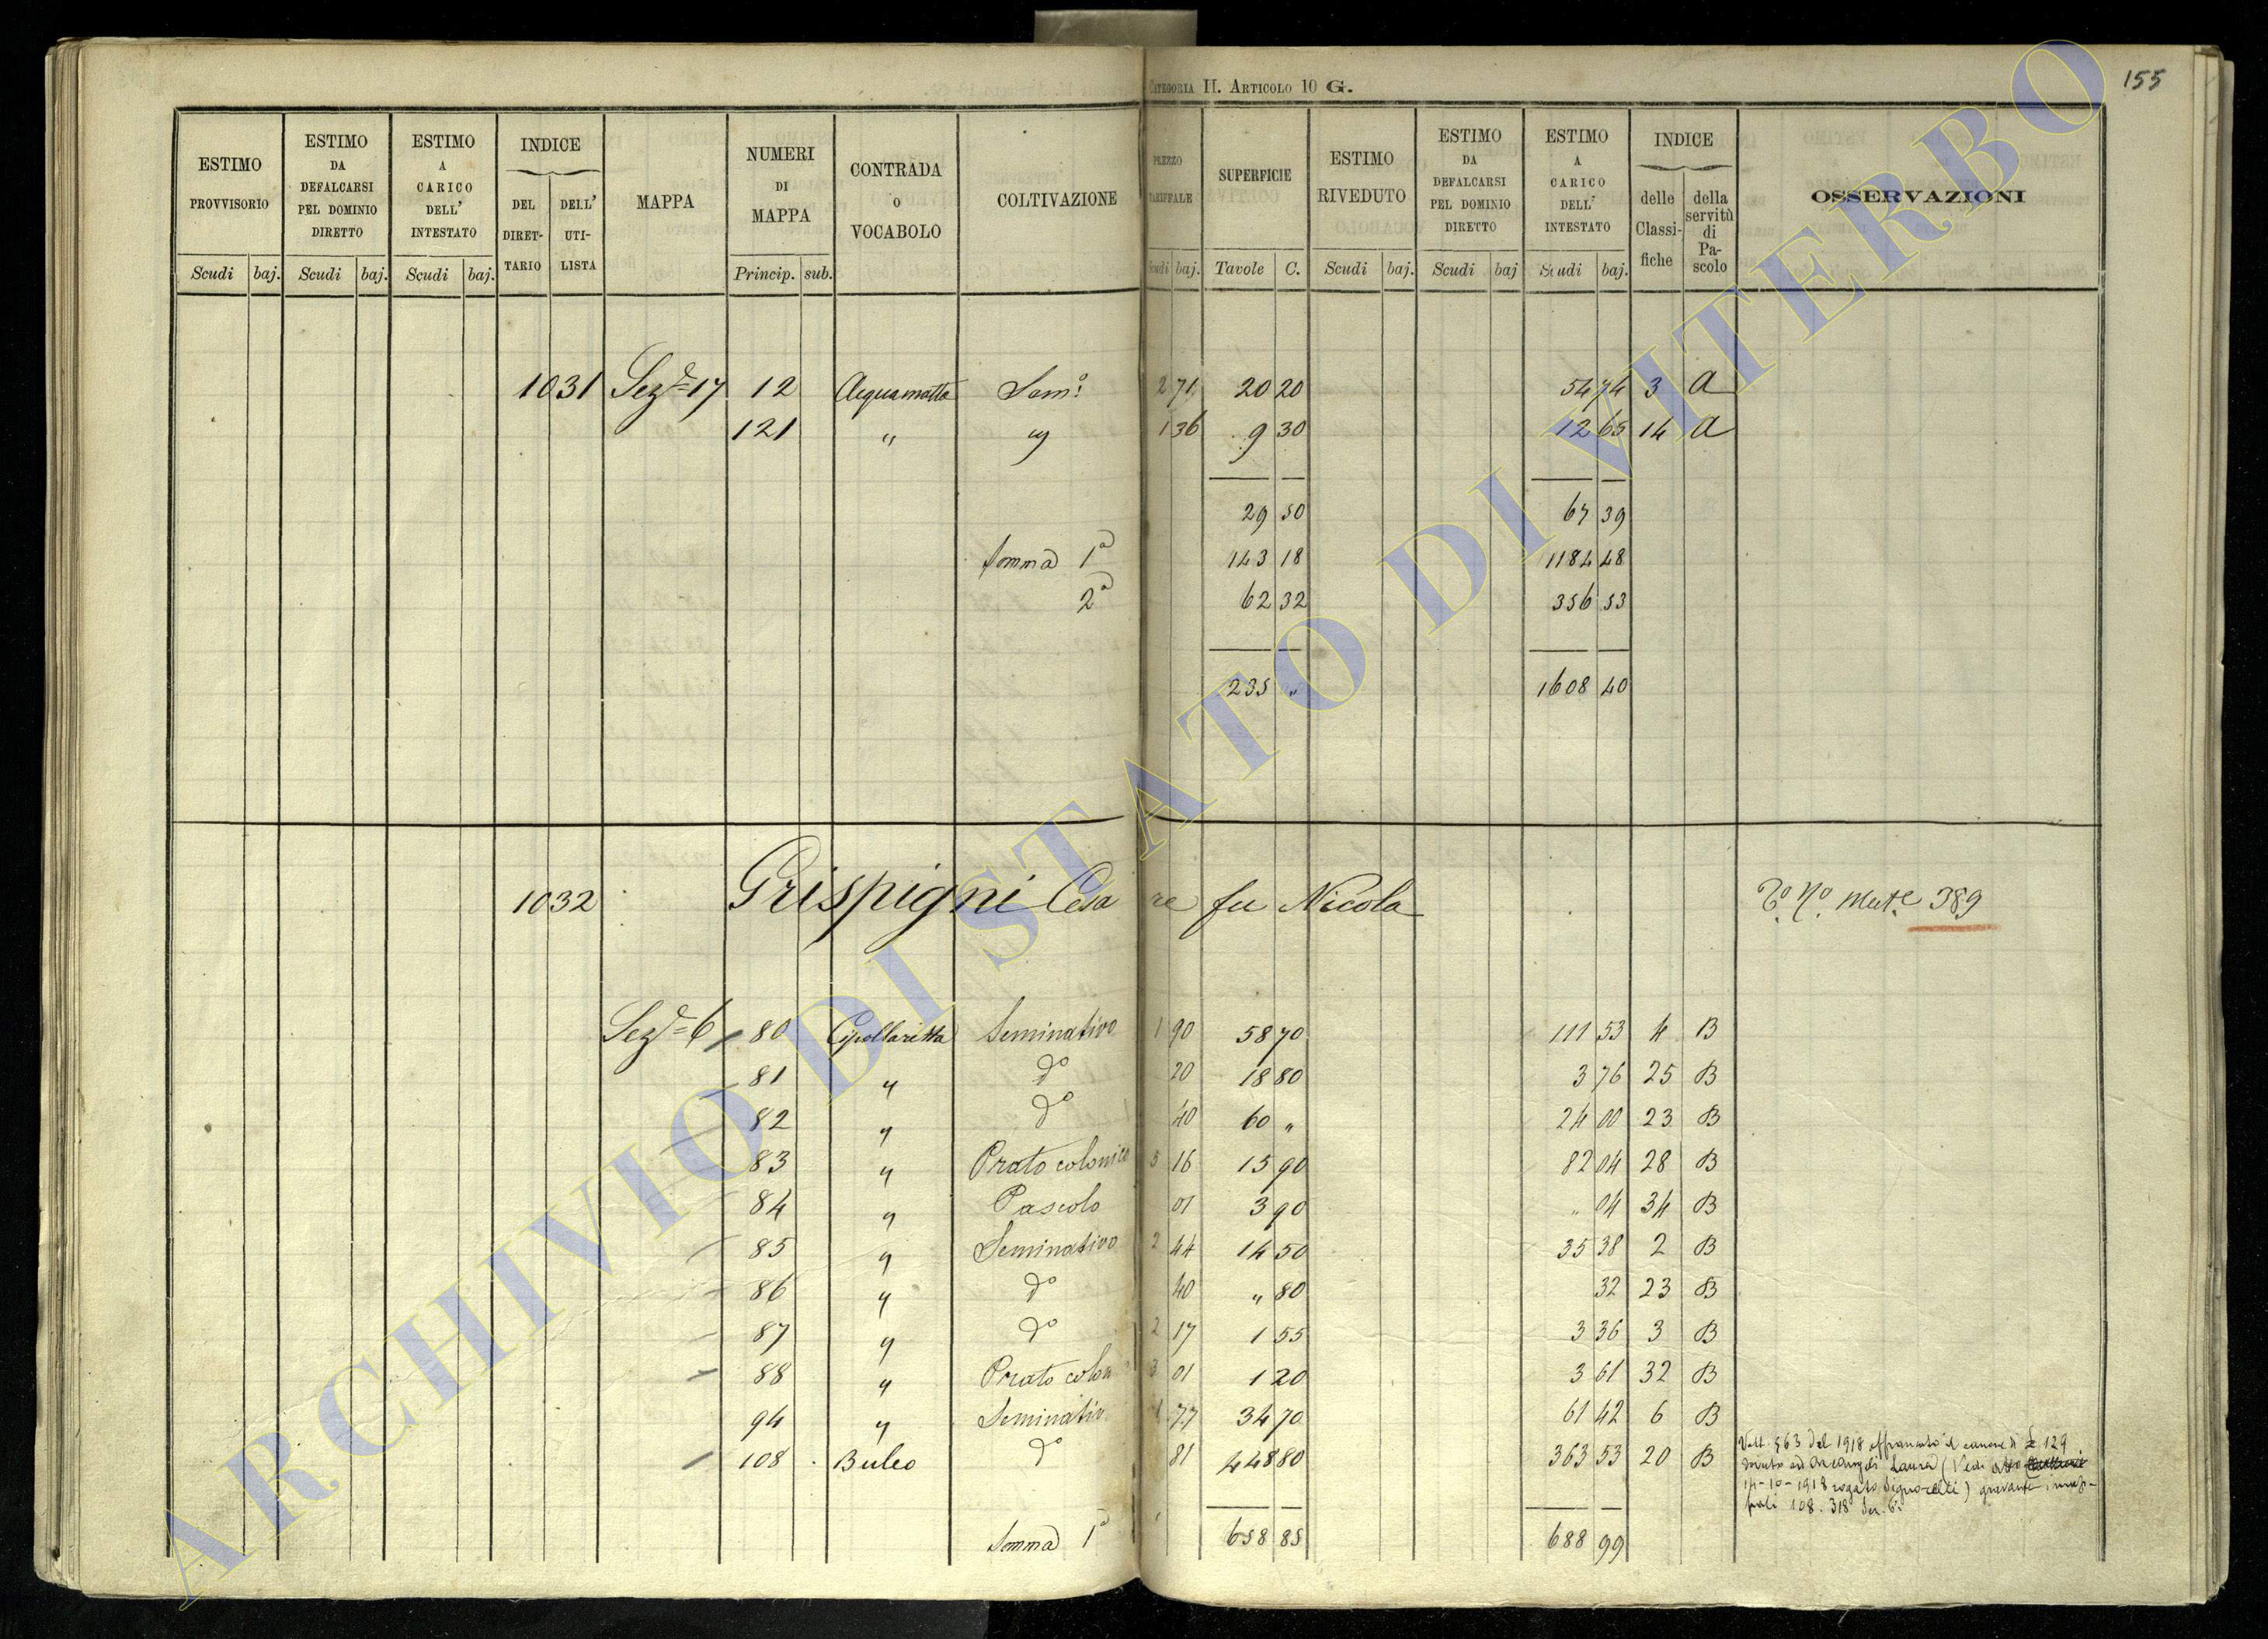 CATEGORIA II. ARTICOLO 10 G.
155
ESTIMO PROVVISORIO Scudi baj.
ESTIMO DA DEFALCARSI PEL DOMINIO DIRETTO Scudi baj.
ESTIMO A CARICO DELL' INTESTATO Scudi baj.
INDICE DEL DIRET-TARIO DELL' UTI-LISTA
MAPPA
NUMERI DI MAPPA Princip. sub.
CONTRADA O VOCABOLO
COLTIVAZIONE
PREZZO TARIFFALE Scudi baj.
SUPERFICIE Tavole C.
ESTIMO RIVEDUTO Scudi baj.
ESTIMO DA DEFALCARSI PEL DOMINIO DIRETTO Scudi baj
ESTIMO A CARICO DELL' INTESTATO Scudi baj.
INDICE delle Classi-fiche della servitù di Pa-scolo
OSSERVAZIONI
1031 Sez.e 17 12 Acquamatta Sem.o 2 71 20 20 54 74 3 A
121 " " 1 36 9 30 12 65 14 A
29 50 67 39
Somma 1a 143 18 1184 48
2a 62 32 356 53
235 " 1608 40
1032 Grispigni Cesare fu Nicola
389
Sez.e 6 80 Cipollaretta Seminativo 1 90 58 70 111 53 4 B
81 " do 20 18 80 3 76 25 B
82 " do 40 60 " 24 00 23 B
83 " Prato colonico 5 16 15 90 82 04 28 B
84 " Pascolo 01 3 90 " 04 34 B
85 " Seminativo 2 44 14 50 35 38 2 B
86 " do 40 " 80 32 23 B
87 " do 2 17 1 55 3 36 3 B
88 " Prato colon 3 01 1 20 3 61 32 B
94 " Seminativo 1 77 34 70 61 42 6 B
108 Buleo do 81 448 80 363 53 20 B
Volt. 563 del 1918 affrancato il canone di £ 129
dovuto ad Arcangeli Laura (Vedi atto
14-10-1918 rogato Signorelli) gravante i map-
pali 108. 318 Sez. 6a
Somma 1a 658 85 688 99
ARCHIVIO DI STATO DI VITERBO